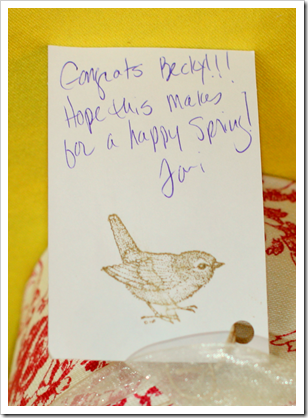 Congrats Becky!!!
Hope this makes
for a happy Spring!
Jori